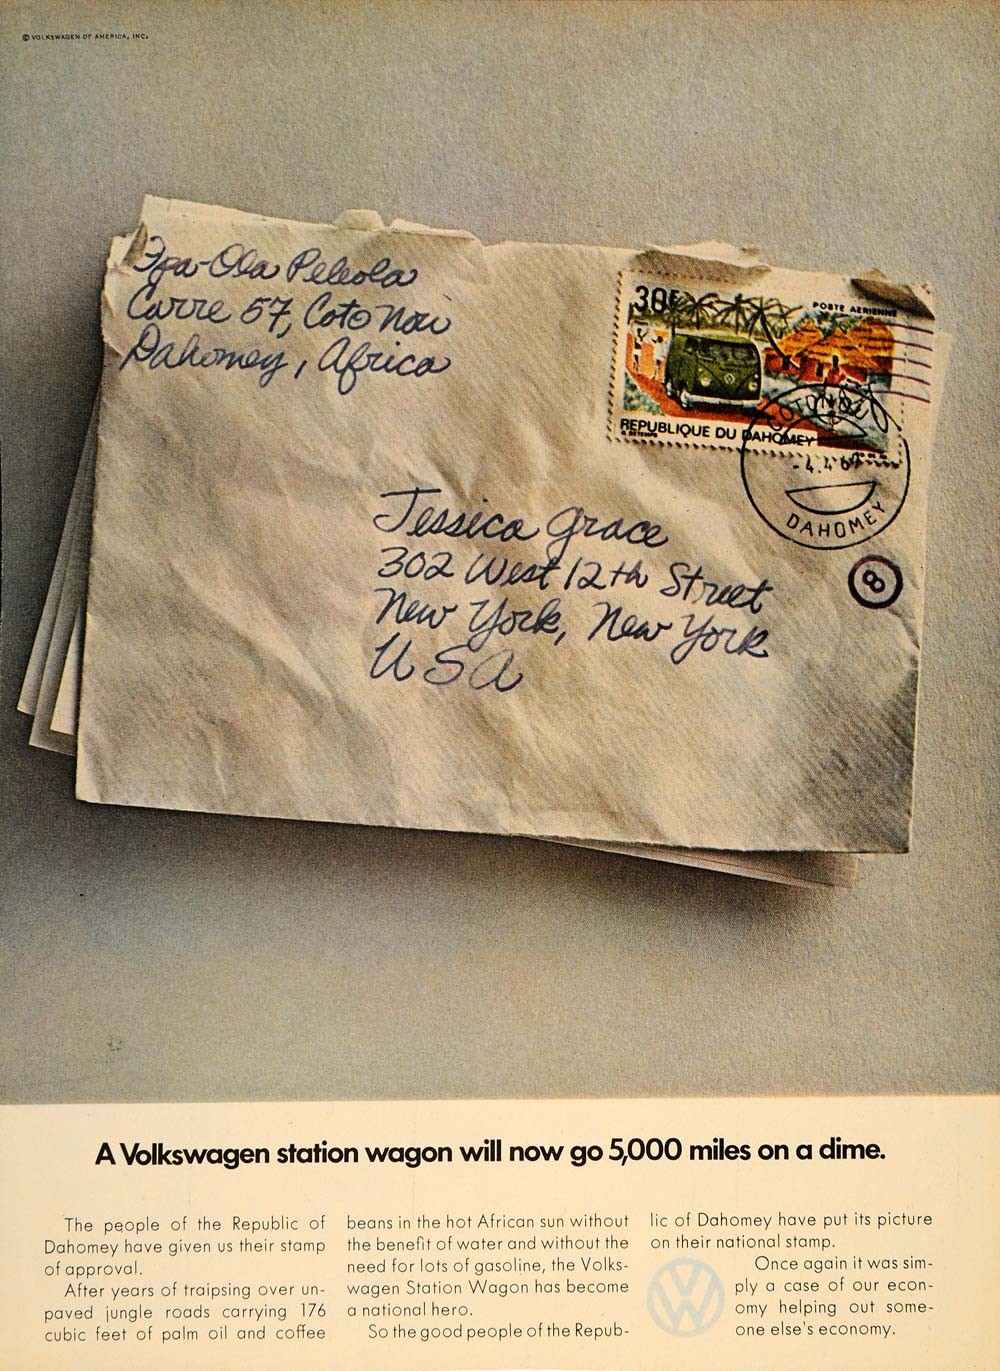 © VOLKSWAGEN OF AMERICA, INC.
Ifa-Ola Peleola
Carre 57, Coto Nou
Dahomey, Africa
30F
POSTE AERIENNE
REPUBLIQUE DU DAHOMEY
COTONOU
-4.4 69
DAHOMEY
8
Jessica Grace
302 West 12th Street
New York, New York
USA
A Volkswagen station wagon will now go 5,000 miles on a dime.
The people of the Republic of
Dahomey have given us their stamp
of approval.
After years of traipsing over un-
paved jungle roads carrying 176
cubic feet of palm oil and coffee
beans in the hot African sun without
the benefit of water and without the
need for lots of gasoline, the Volks-
wagen Station Wagon has become
a national hero.
So the good people of the Repub-
lic of Dahomey have put its picture
on their national stamp.
Once again it was sim-
ply a case of our econ-
omy helping out some-
one else's economy.
VW